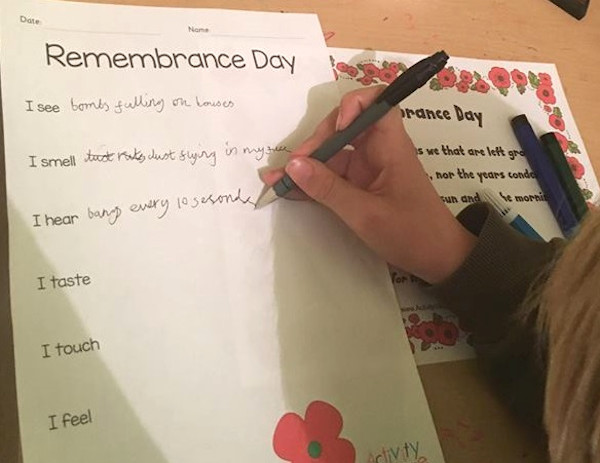 Date:
Name:
Remembrance Day
I see bombs falling on houses
I smell dust flying in my
I hear bangs every 10 sesonds
I taste
I touch
I feel
Activity
rance Day
s we that are left gro
, nor the years conde
sun and
he mornin
for